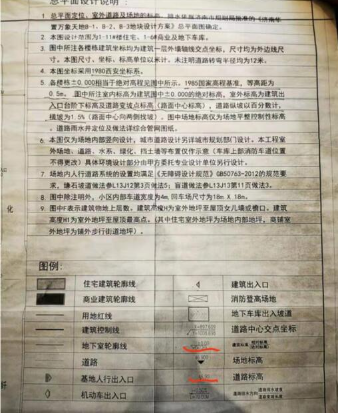 总平面设计说明：
1. 总平面定位、室外道路及场地的标高、
置万象天地B-1、B-2、B-3地块设计方案》总平面图确定。
2. 本图设计范围为1-11#楼住宅、1-6#商业及地下车库。
3. 图中所注各楼栋建筑坐标均为建筑一层外墙轴线交点坐标, 尺寸均为外边线尺
寸。本图尺寸、坐标、标高单位以米计, 未注明道路转弯半径均为12米。
4. 本图坐标采用1980西安坐标系。
5. 各楼栋±0.000相当于绝对高程见图中所示。1985国家高程基准, 等高距为
0.5m。图中所注室内标高为建筑图中±0.000的绝对标高, 室外标高为建筑出
入口台阶下标高及道路变坡点标高(路面中心标高)。道路纵坡以百分数计,
横坡为1.5%(路面中心向两侧找坡)。图中场地标高仅为场地平整控制性标高
, 道路雨水井定位及做法详综合管网图纸。
6. 本图仅为场地内部竖向设计, 城市道路设计另详城市规划部门设计。本工程室
外场地、道路、水系、绿化、挡土墙等布置仅作示意(车库上部消防车道位置
不得更改)具体环境设计部分由甲方委托专业设计单位另行设计。
7. 场地内人行道路系统的设置均满足《无障碍设计规范》GB50763-2012的规范要
求, 缘石坡道做法参L13J12第3页做法5; 盲道做法参L13J12第11页做法3。
8. 图中除注明外, 小区内部车道宽度为4m,回车场尺寸为18m X 18m。
9. 图中F表示建筑物地上层数, 建筑高度H为室外地坪至屋顶女儿墙或檐口。建筑
高度H1为室外地坪至屋顶最高点。(其中住宅室外地坪为场地内部地坪, 商铺室
外地坪为铺外步行街道地坪)。
图例:
住宅建筑轮廓线
建筑出入口
商业建筑轮廓线
消防登高场地
用地红线
地下车库出入坡道
建筑控制线
道路中心交点坐标
地下室轮廓线
道路
场地标高
基地人行出入口
道路标高
机动车出入口